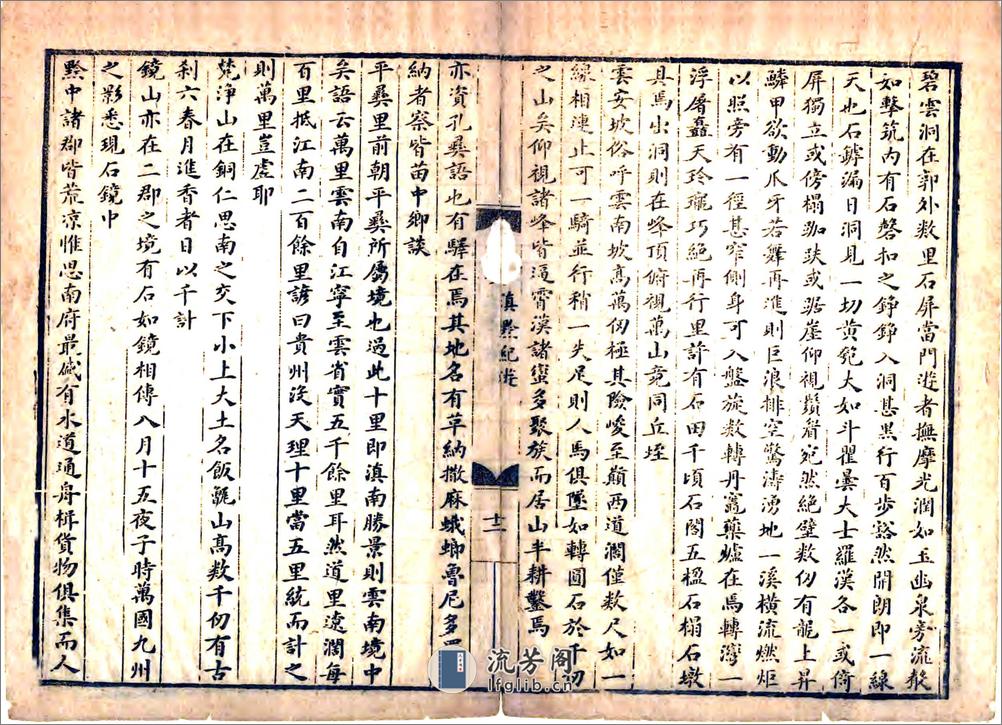 碧雲洞在郭外数里石屏當門遊者撫摩光潤如玉幽泉旁流散
如擊筑内有石磬扣之錚錚入洞甚黑行百步豁然開朗即一線
天也石罅漏日洞見一切黄苑大如斗瞿曇大士羅漢各一或倚
屏獨立或傍榻跏趺或踞崖仰視鬚眉宛然絶壁数仞有龍上昇
鱗甲欲動爪牙若舞再進則巨浪排空驚濤湧地一溪横流燃炬
以照旁有一徑甚窄側身可入盤旋数轉丹竈藥爐在焉轉灣一
浮屠矗天玲瓏巧絶再行里許有石田千頃石閣五楹石榻石墩
具焉出洞則在峰頂俯視萬山竟同丘垤
雲安坡俗呼雲南坡高萬仞極其險峻至巔西道濶僅数尺如一
線相連止可一騎並行稍一失足則人馬俱墜如轉圓石於千仞
之山矣仰視諸峰皆逼霄漢諸蠻多聚族而居山半耕鑿焉
滇黔紀遊
十二
亦資孔彛語也有驛在焉其地名有草納撒麻蛾螂魯尼多
納者察皆苗中鄉談
平彛里前朝平彛所屬境也過此十里即滇南勝景則雲南境中
矣語云萬里雲南自江寧至雲省實五千餘里耳然道里遼濶每
百里抵江南二百餘里諺曰貴州没天理十里當五里統而計之
則萬里豈虚耶
梵浄山在銅仁思南之交下小上大土名飯甑山高数千仞有古
刹六春月進香者日以千計
鏡山亦在二郡之境有石如鏡相傳八月十五夜子時萬國九州
之影悉現石鏡中
黔中諸郡皆荒凉惟思南府最盛有水道通舟楫貨物俱集而人
流芳阁
lfglib.cn